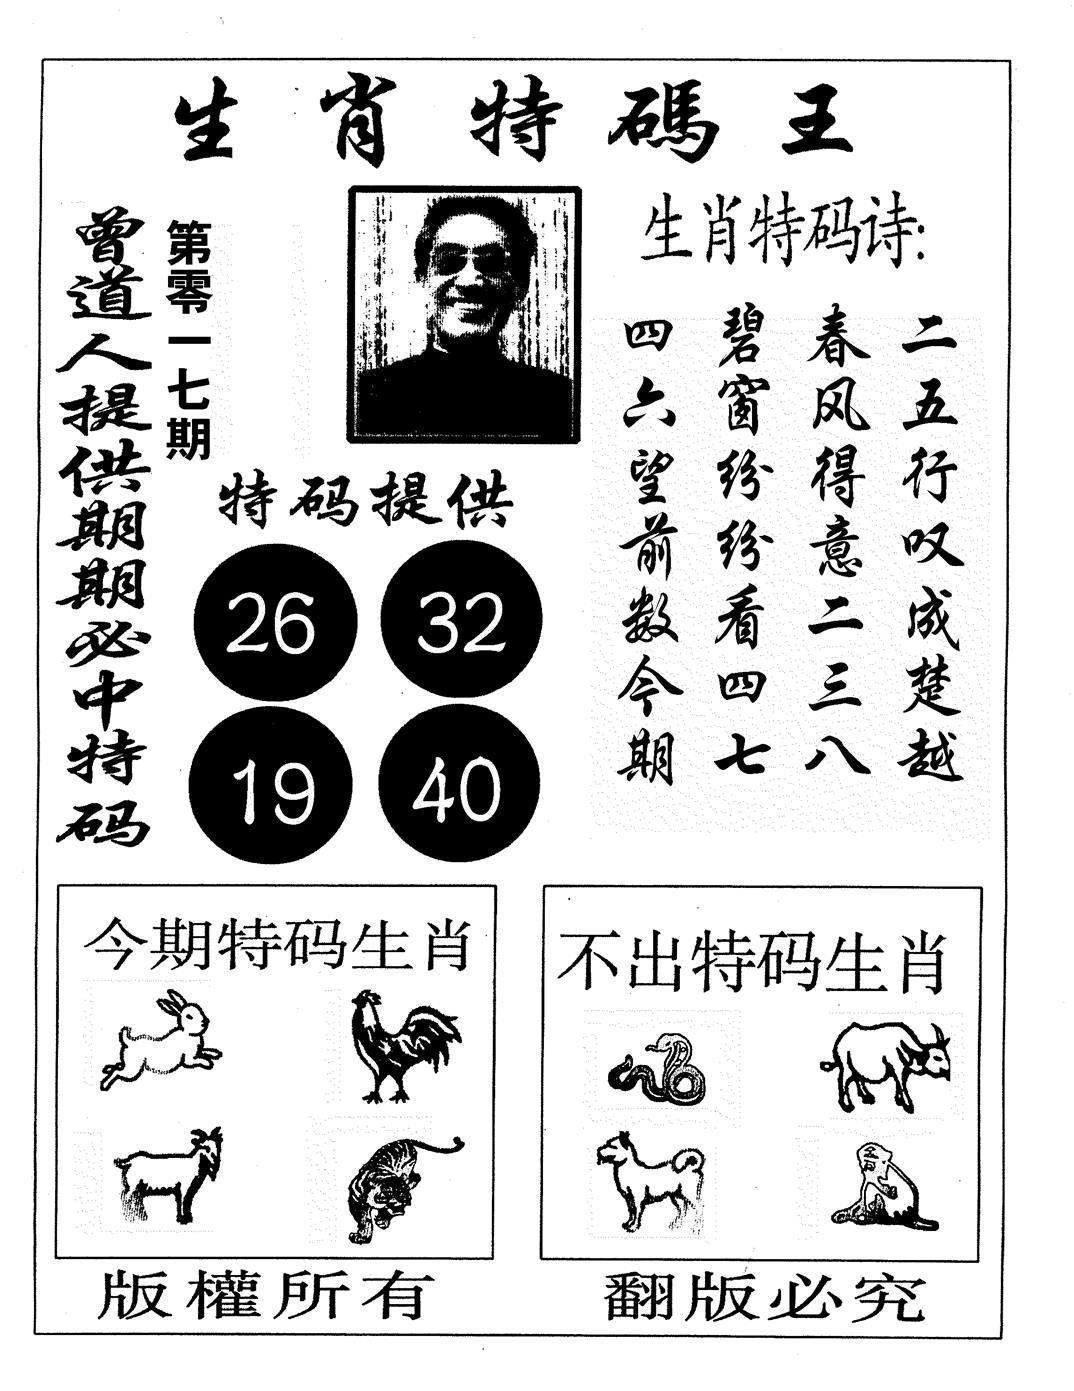 生肖特碼王
曾道人提供期期必中特码
第零一七期
生肖特码诗:
二五行叹成楚越
春风得意二三八
碧窗纷纷看四七
四六望前数今期
特码提供
26 32
19 40
今期特码生肖
不出特码生肖
版權所有
翻版必究